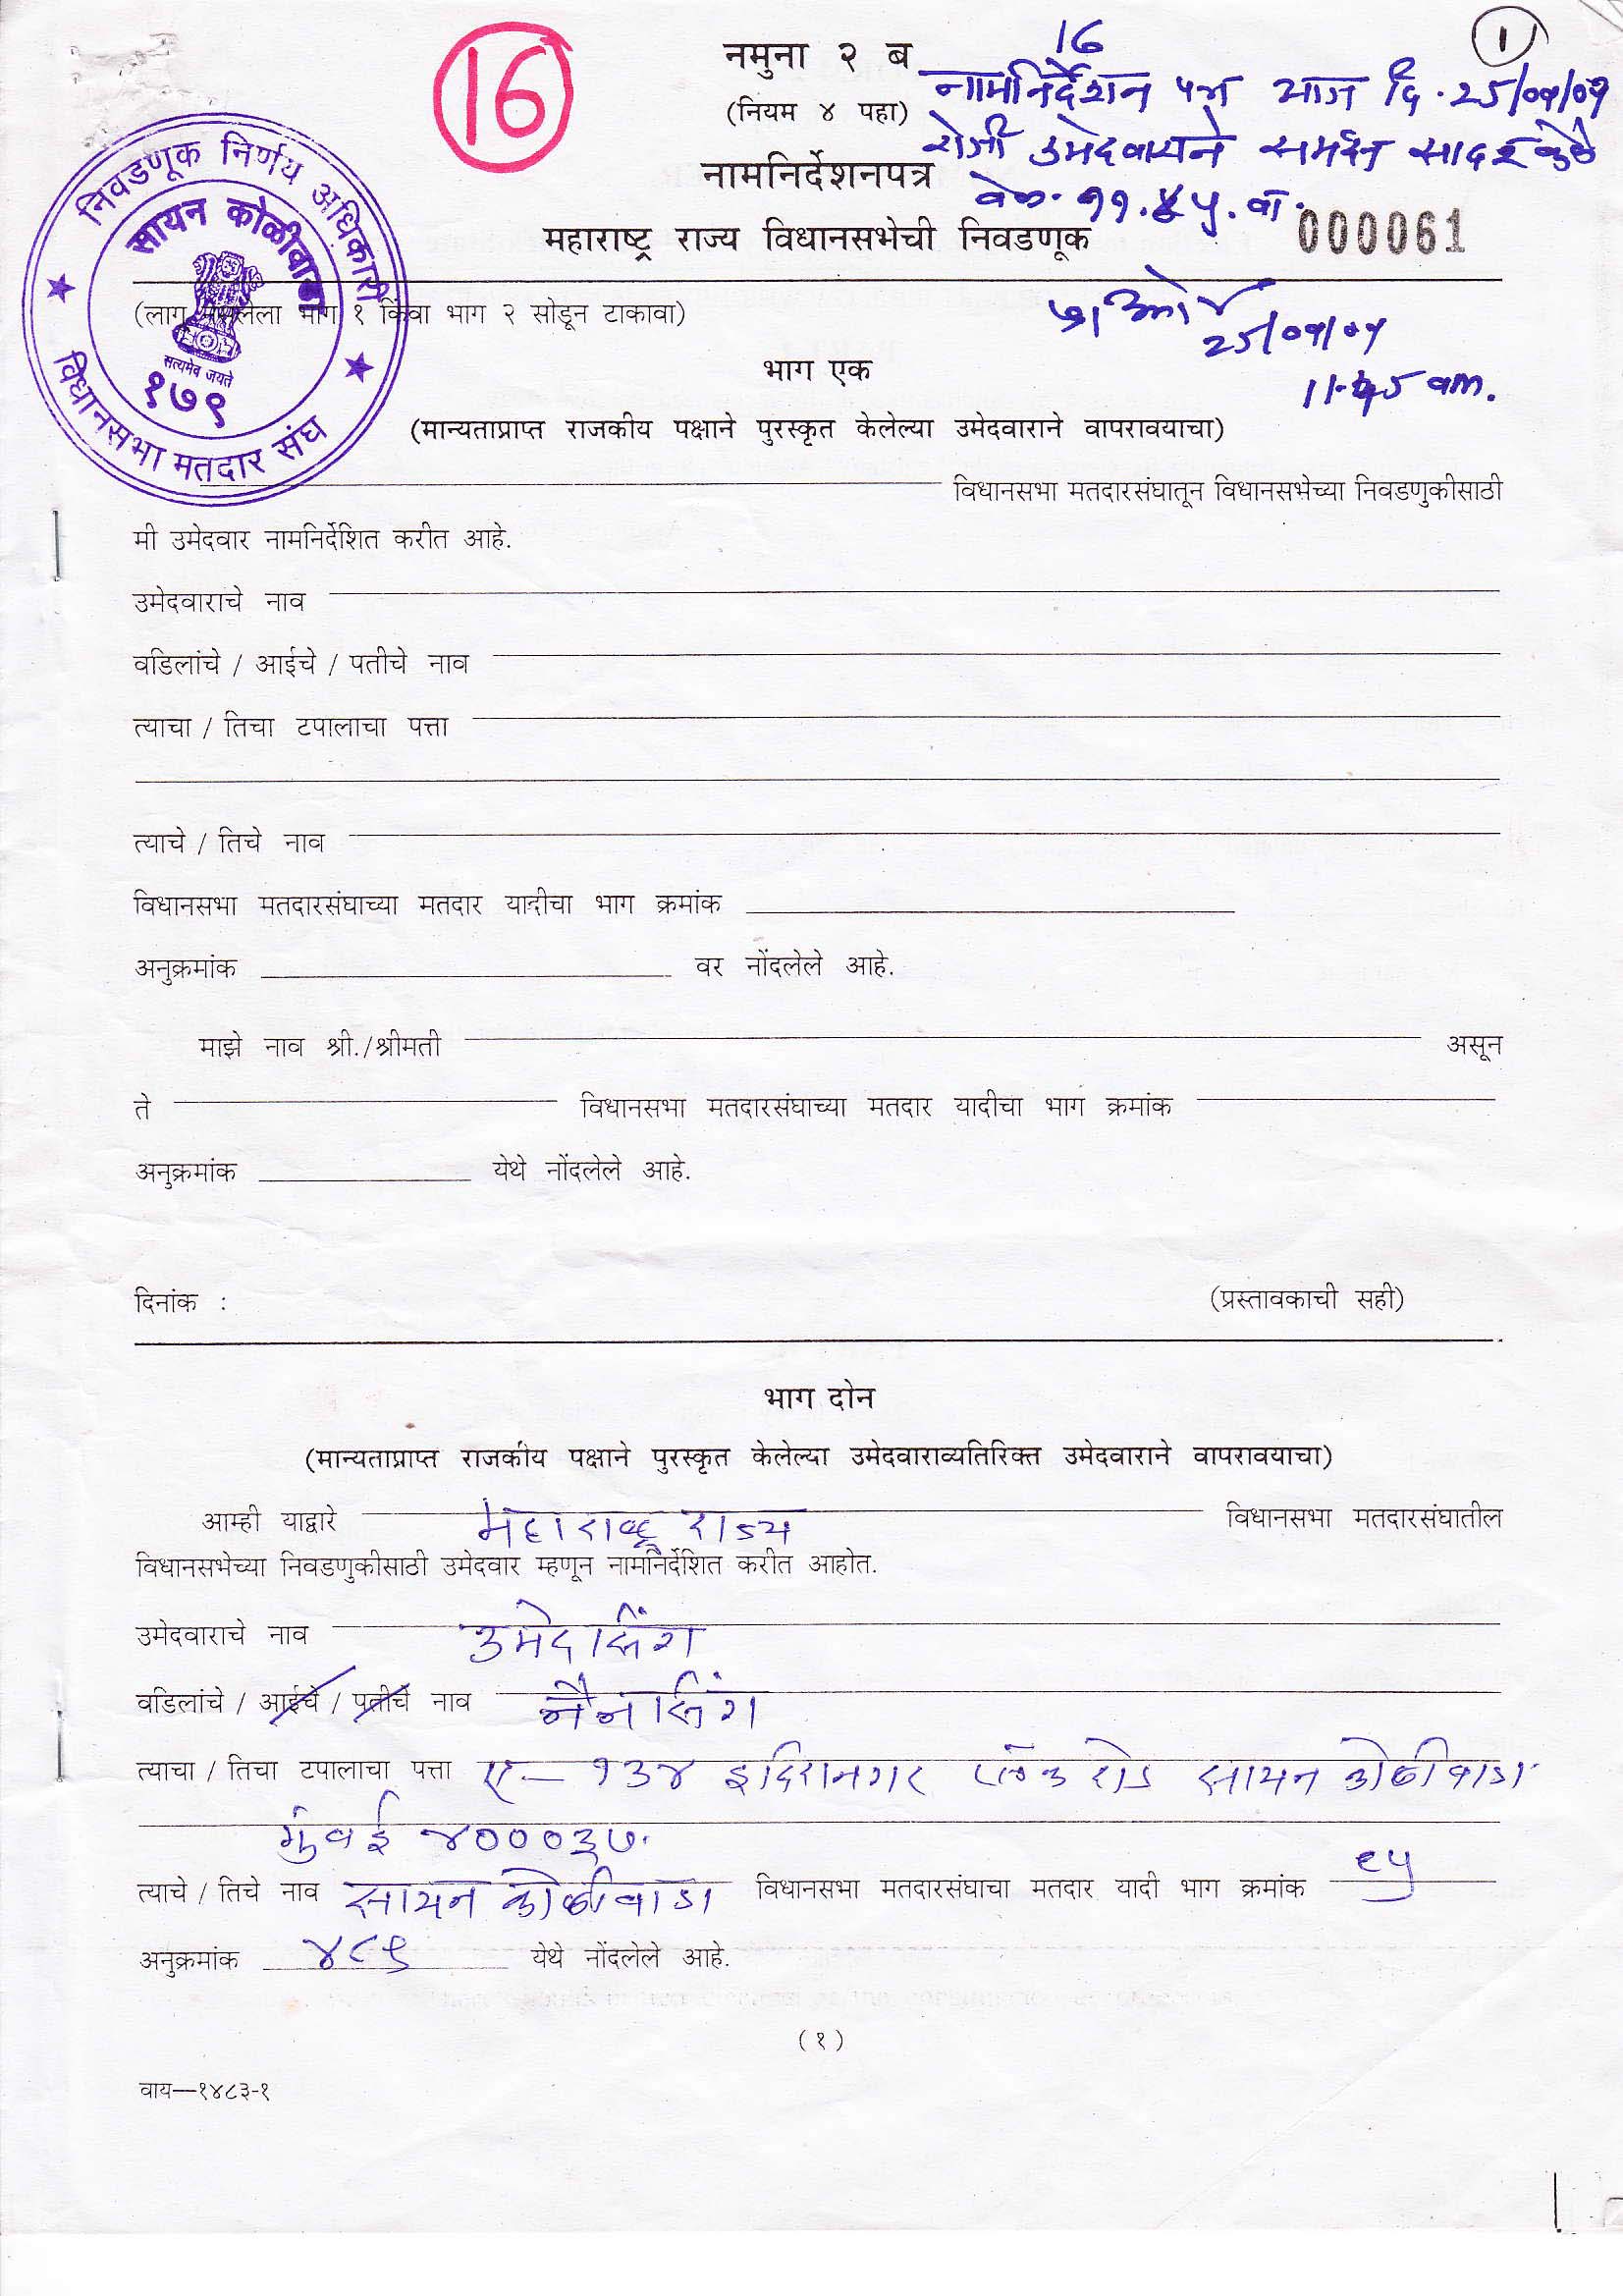 16
नमुना २ ब
16
1
(नियम ४ पहा)
नामनिर्देशन पत्र आज दि. 25/09/09
रोजी उमेदवाराने समक्ष सादर केले
वेळ. ११.४५ वा.
नामनिर्देशनपत्र
महाराष्ट्र राज्य विधानसभेची निवडणूक
000061
निवडणूक निर्णय अधिकारी
सायन कोळीवाडा
सत्यमेव जयते
१७९
विधानसभा मतदार संघ
(लागू नसलेला भाग १ किंवा भाग २ सोडून टाकावा)
25/09/09
11.45 am.
भाग एक
(मान्यताप्राप्त राजकीय पक्षाने पुरस्कृत केलेल्या उमेदवाराने वापरावयाचा)
विधानसभा मतदारसंघातून विधानसभेच्या निवडणुकीसाठी
मी उमेदवार नामनिर्देशित करीत आहे.
उमेदवाराचे नाव
वडिलांचे / आईचे / पतीचे नाव
त्याचा / तिचा टपालाचा पत्ता
त्याचे / तिचे नाव
विधानसभा मतदारसंघाच्या मतदार यादीचा भाग क्रमांक
अनुक्रमांक वर नोंदलेले आहे.
माझे नाव श्री./श्रीमती असून
ते विधानसभा मतदारसंघाच्या मतदार यादीचा भाग क्रमांक
अनुक्रमांक येथे नोंदलेले आहे.
दिनांक : (प्रस्तावकाची सही)
भाग दोन
(मान्यताप्राप्त राजकीय पक्षाने पुरस्कृत केलेल्या उमेदवाराव्यतिरिक्त उमेदवाराने वापरावयाचा)
आम्ही याद्वारे महाराष्ट्र राज्य विधानसभा मतदारसंघातील
विधानसभेच्या निवडणुकीसाठी उमेदवार म्हणून नामनिर्देशित करीत आहोत.
उमेदवाराचे नाव उमेदसिंग
वडिलांचे / आईचे / पतीचे नाव नैनसिंग
त्याचा / तिचा टपालाचा पत्ता ए-१३४ इंदिरानगर रोड सायन कोळीवाडा
मुंबई ४०००३७.
त्याचे / तिचे नाव सायन कोळीवाडा विधानसभा मतदारसंघाचा मतदार यादी भाग क्रमांक ९५
अनुक्रमांक ४८९ येथे नोंदलेले आहे.
(१)
वाय—१४८३-१